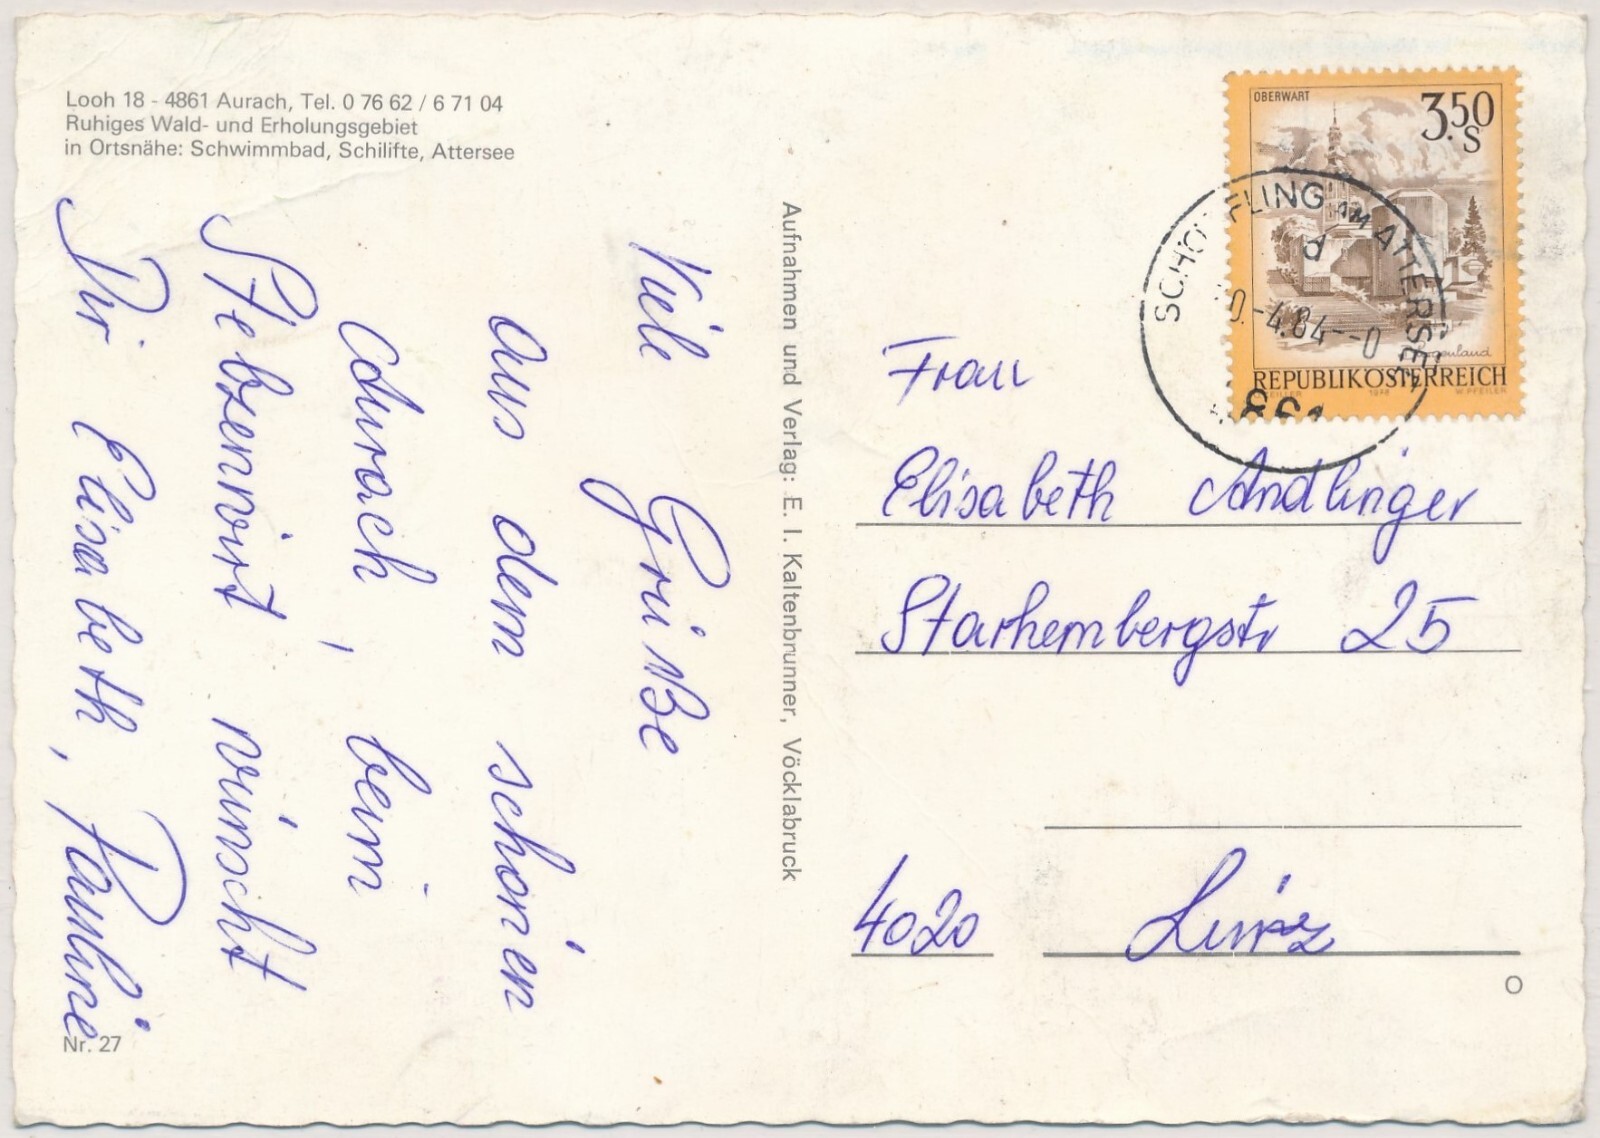 Looh 18 - 4861 Aurach, Tel. 0 76 62 / 6 71 04
Ruhiges Wald- und Erholungsgebiet
in Ortsnähe: Schwimmbad, Schilifte, Attersee
Viele Grüße
aus dem schönen
Aurach, beim
Stebzenwirt wünscht
Dir Elisabeth, Pauline
Nr. 27
Aufnahmen und Verlag: E. I. Kaltenbrunner, Vöcklabruck
OBERWART
3.50
S
Burgenland
REPUBLIK ÖSTERREICH
1978
W. PFEILER
AM ATTERSEE
d
0.-4.84-0
Frau
Elisabeth Andlinger
Starhembergstr 25
4020 Linz
O